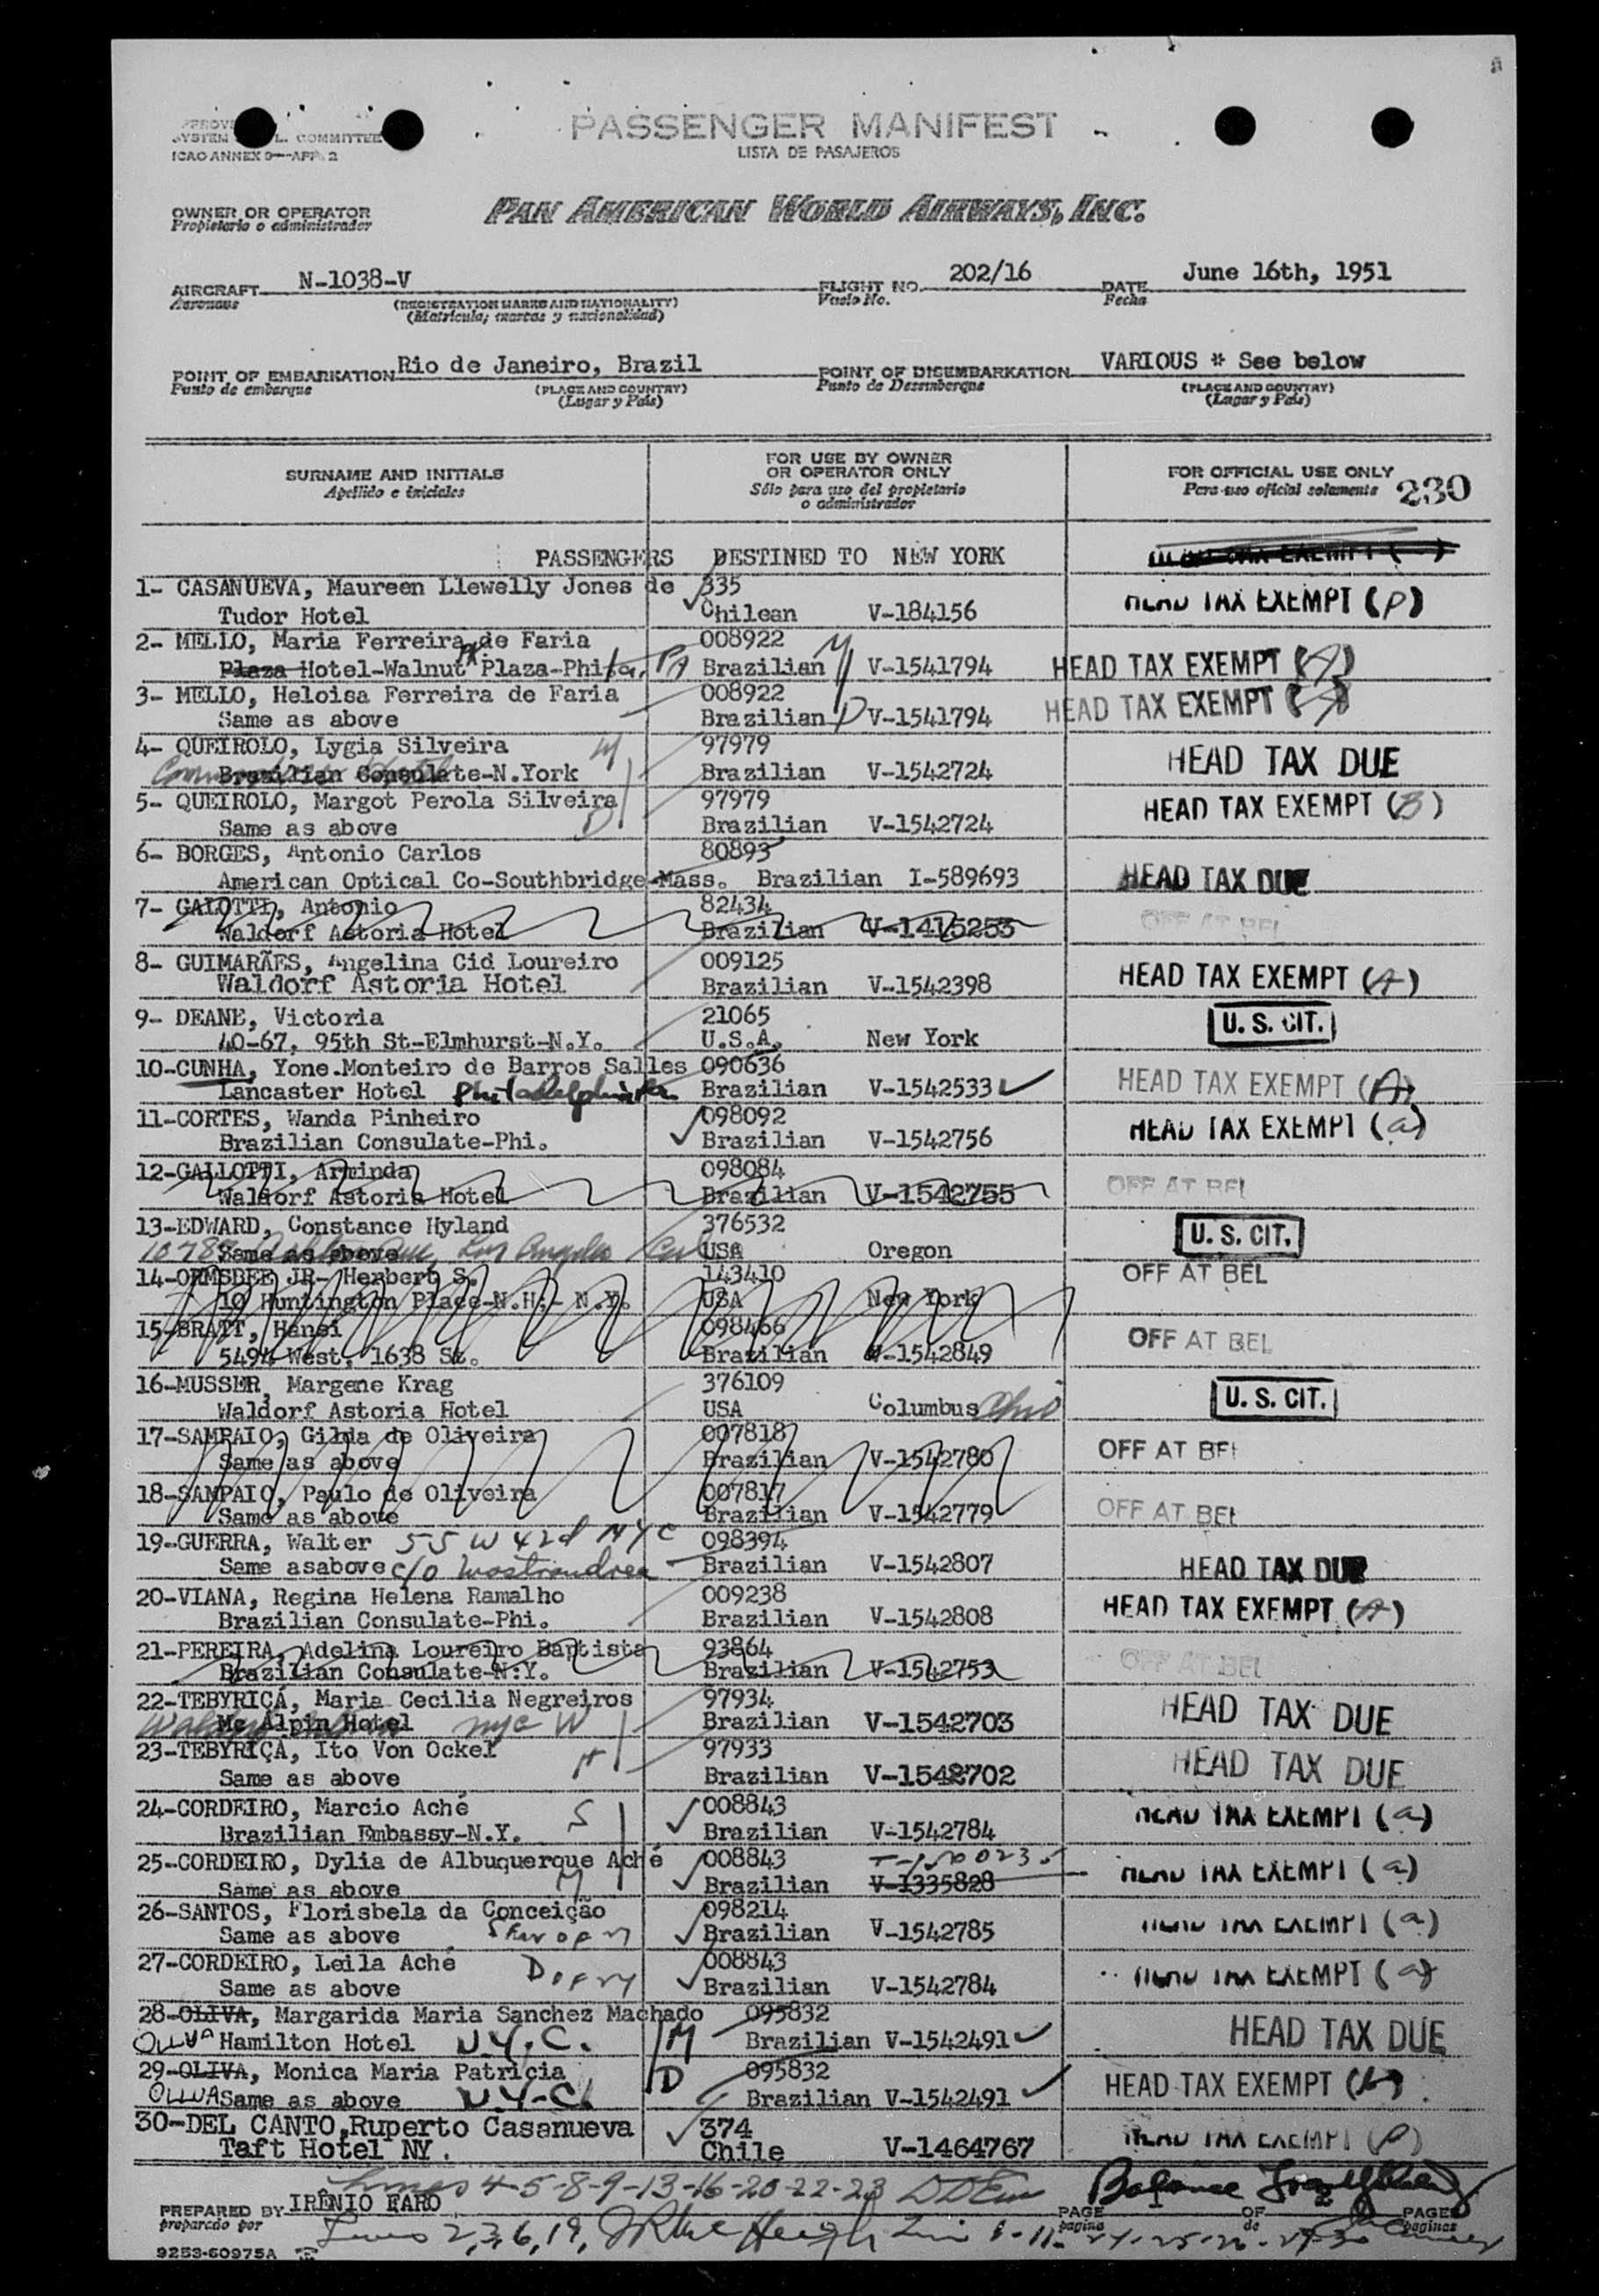 PASSENGER MANIFEST
LISTA DE PASAJEROS
SYSTEM L. COMMITTEE
ICAO ANNEX 9—APP. 2
PAN AMERICAN WORLD AIRWAYS, INC.
OWNER OR OPERATOR
Propietario o administrador
AIRCRAFT N-1038-V FLIGHT NO. 202/16 DATE June 16th, 1951
Aeronave (REGISTRATION MARKS AND NATIONALITY) Vuelo No. Fecha
(Matricula, marcas y nacionalidad)
POINT OF EMBARKATION Rio de Janeiro, Brazil POINT OF DISEMBARKATION VARIOUS * See below
Punto de embarque (PLACE AND COUNTRY) Punto de Desembarque (PLACE AND COUNTRY)
(Lugar y País) (Lugar y País)
SURNAME AND INITIALS FOR USE BY OWNER OR OPERATOR ONLY FOR OFFICIAL USE ONLY
Apellido e iniciales Sólo para uso del propietario o administrador Para uso oficial solamente 230
PASSENGERS DESTINED TO NEW YORK
1- CASANUEVA, Maureen Llewelly Jones de 335
Tudor Hotel Chilean V-184156 HEAD TAX EXEMPT (P)
2- MELLO, Maria Ferreira de Faria 008922
Plaza Hotel-Walnut Pk Plaza-Phila, PA Brazilian M V-1541794 HEAD TAX EXEMPT (A)
3- MELLO, Heloisa Ferreira de Faria 008922
Same as above Brazilian D V-1541794 HEAD TAX EXEMPT (A)
4- QUEIROLO, Lygia Silveira W 97979
Brazilian Consulate-N.York Brazilian V-1542724 HEAD TAX DUE
5- QUEIROLO, Margot Perola Silveira 97979
Same as above D Brazilian V-1542724 HEAD TAX EXEMPT (B)
6- BORGES, Antonio Carlos 80893
American Optical Co-Southbridge-Mass. Brazilian I-589693 HEAD TAX DUE
7- GALOTTI, Antonio 82434
Waldorf Astoria Hotel Brazilian V-1415253 OFF AT BEL
8- GUIMARÃES, Angelina Cid Loureiro 009125
Waldorf Astoria Hotel Brazilian V-1542398 HEAD TAX EXEMPT (A)
9- DEANE, Victoria 21065
40-67, 95th St-Elmhurst-N.Y. U.S.A. New York U.S. CIT.
10-CUNHA, Yone.Monteiro de Barros Salles 090636
Lancaster Hotel Philadelphia Brazilian V-1542533 HEAD TAX EXEMPT (A)
11-CORTES, Wanda Pinheiro 098092
Brazilian Consulate-Phi. Brazilian V-1542756 HEAD TAX EXEMPT (a)
12-GALLOTTI, Arminda 098084
Waldorf Astoria Hotel Brazilian V-1542755 OFF AT BEL
13-EDWARD, Constance Hyland 376532
Same as above Los Angeles Cal USA Oregon U.S. CIT.
14-ORMSBEE JR- Herbert S. 143410
10 Huntington Place-N.H.- N.Y. USA New York OFF AT BEL
15-BRATT, Hansi 098466
5494 West, 1638 St. Brazilian V-1542849 OFF AT BEL
16-MUSSER, Margene Krag 376109
Waldorf Astoria Hotel USA Columbus Ohio U.S. CIT.
17-SAMPAIO, Gilda de Oliveira 007818
Same as above Brazilian V-1542780 OFF AT BEL
18-SAMPAIO, Paulo de Oliveira 007817
Same as above Brazilian V-1542779 OFF AT BEL
19-GUERRA, Walter 55 W 42d NYC 098394
Same asabove c/o Brazilian V-1542807 HEAD TAX DUE
20-VIANA, Regina Helena Ramalho 009238
Brazilian Consulate-Phi. Brazilian V-1542808 HEAD TAX EXEMPT (A)
21-PEREIRA, Adelina Loureiro Baptista 93864
Brazilian Consulate-N.Y. Brazilian V-1542753 OFF AT BEL
22-TEBYRIÇÁ, Maria Cecilia Negreiros 97934
Mc Alpin Hotel NYC W Brazilian V-1542703 HEAD TAX DUE
23-TEBYRIÇÁ, Ito Von Ockel 97933
Same as above H Brazilian V-1542702 HEAD TAX DUE
24-CORDEIRO, Marcio Aché 008843
Brazilian Embassy-N.Y. S Brazilian V-1542784 HEAD TAX EXEMPT (a)
25-CORDEIRO, Dylia de Albuquerque Aché 008843 T-1500235
Same as above M Brazilian V-1335828 HEAD TAX EXEMPT (a)
26-SANTOS, Florisbela da Conceição 098214
Same as above Brazilian V-1542785 HEAD TAX EXEMPT (a)
27-CORDEIRO, Leila Aché 008843
Same as above D of M Brazilian V-1542784 HEAD TAX EXEMPT (a)
28-OLIVA, Margarida Maria Sanchez Machado 095832
OLLVA Hamilton Hotel N.Y.C. M Brazilian V-1542491 HEAD TAX DUE
29-OLIVA, Monica Maria Patricia 095832
OLLVA Same as above N.Y.C. D Brazilian V-1542491 HEAD TAX EXEMPT (b)
30-DEL CANTO,Ruperto Casanueva 374
Taft Hotel NY. Chile V-1464767 HEAD TAX EXEMPT (P)
Lines 4-5-8-9-13-16-20-22-23 Balance
PREPARED BY IRÊNIO FARO PAGE 1 OF 2 PAGES
preparado por Lines 2,3,6,19, pagina de paginas
9253-60975A